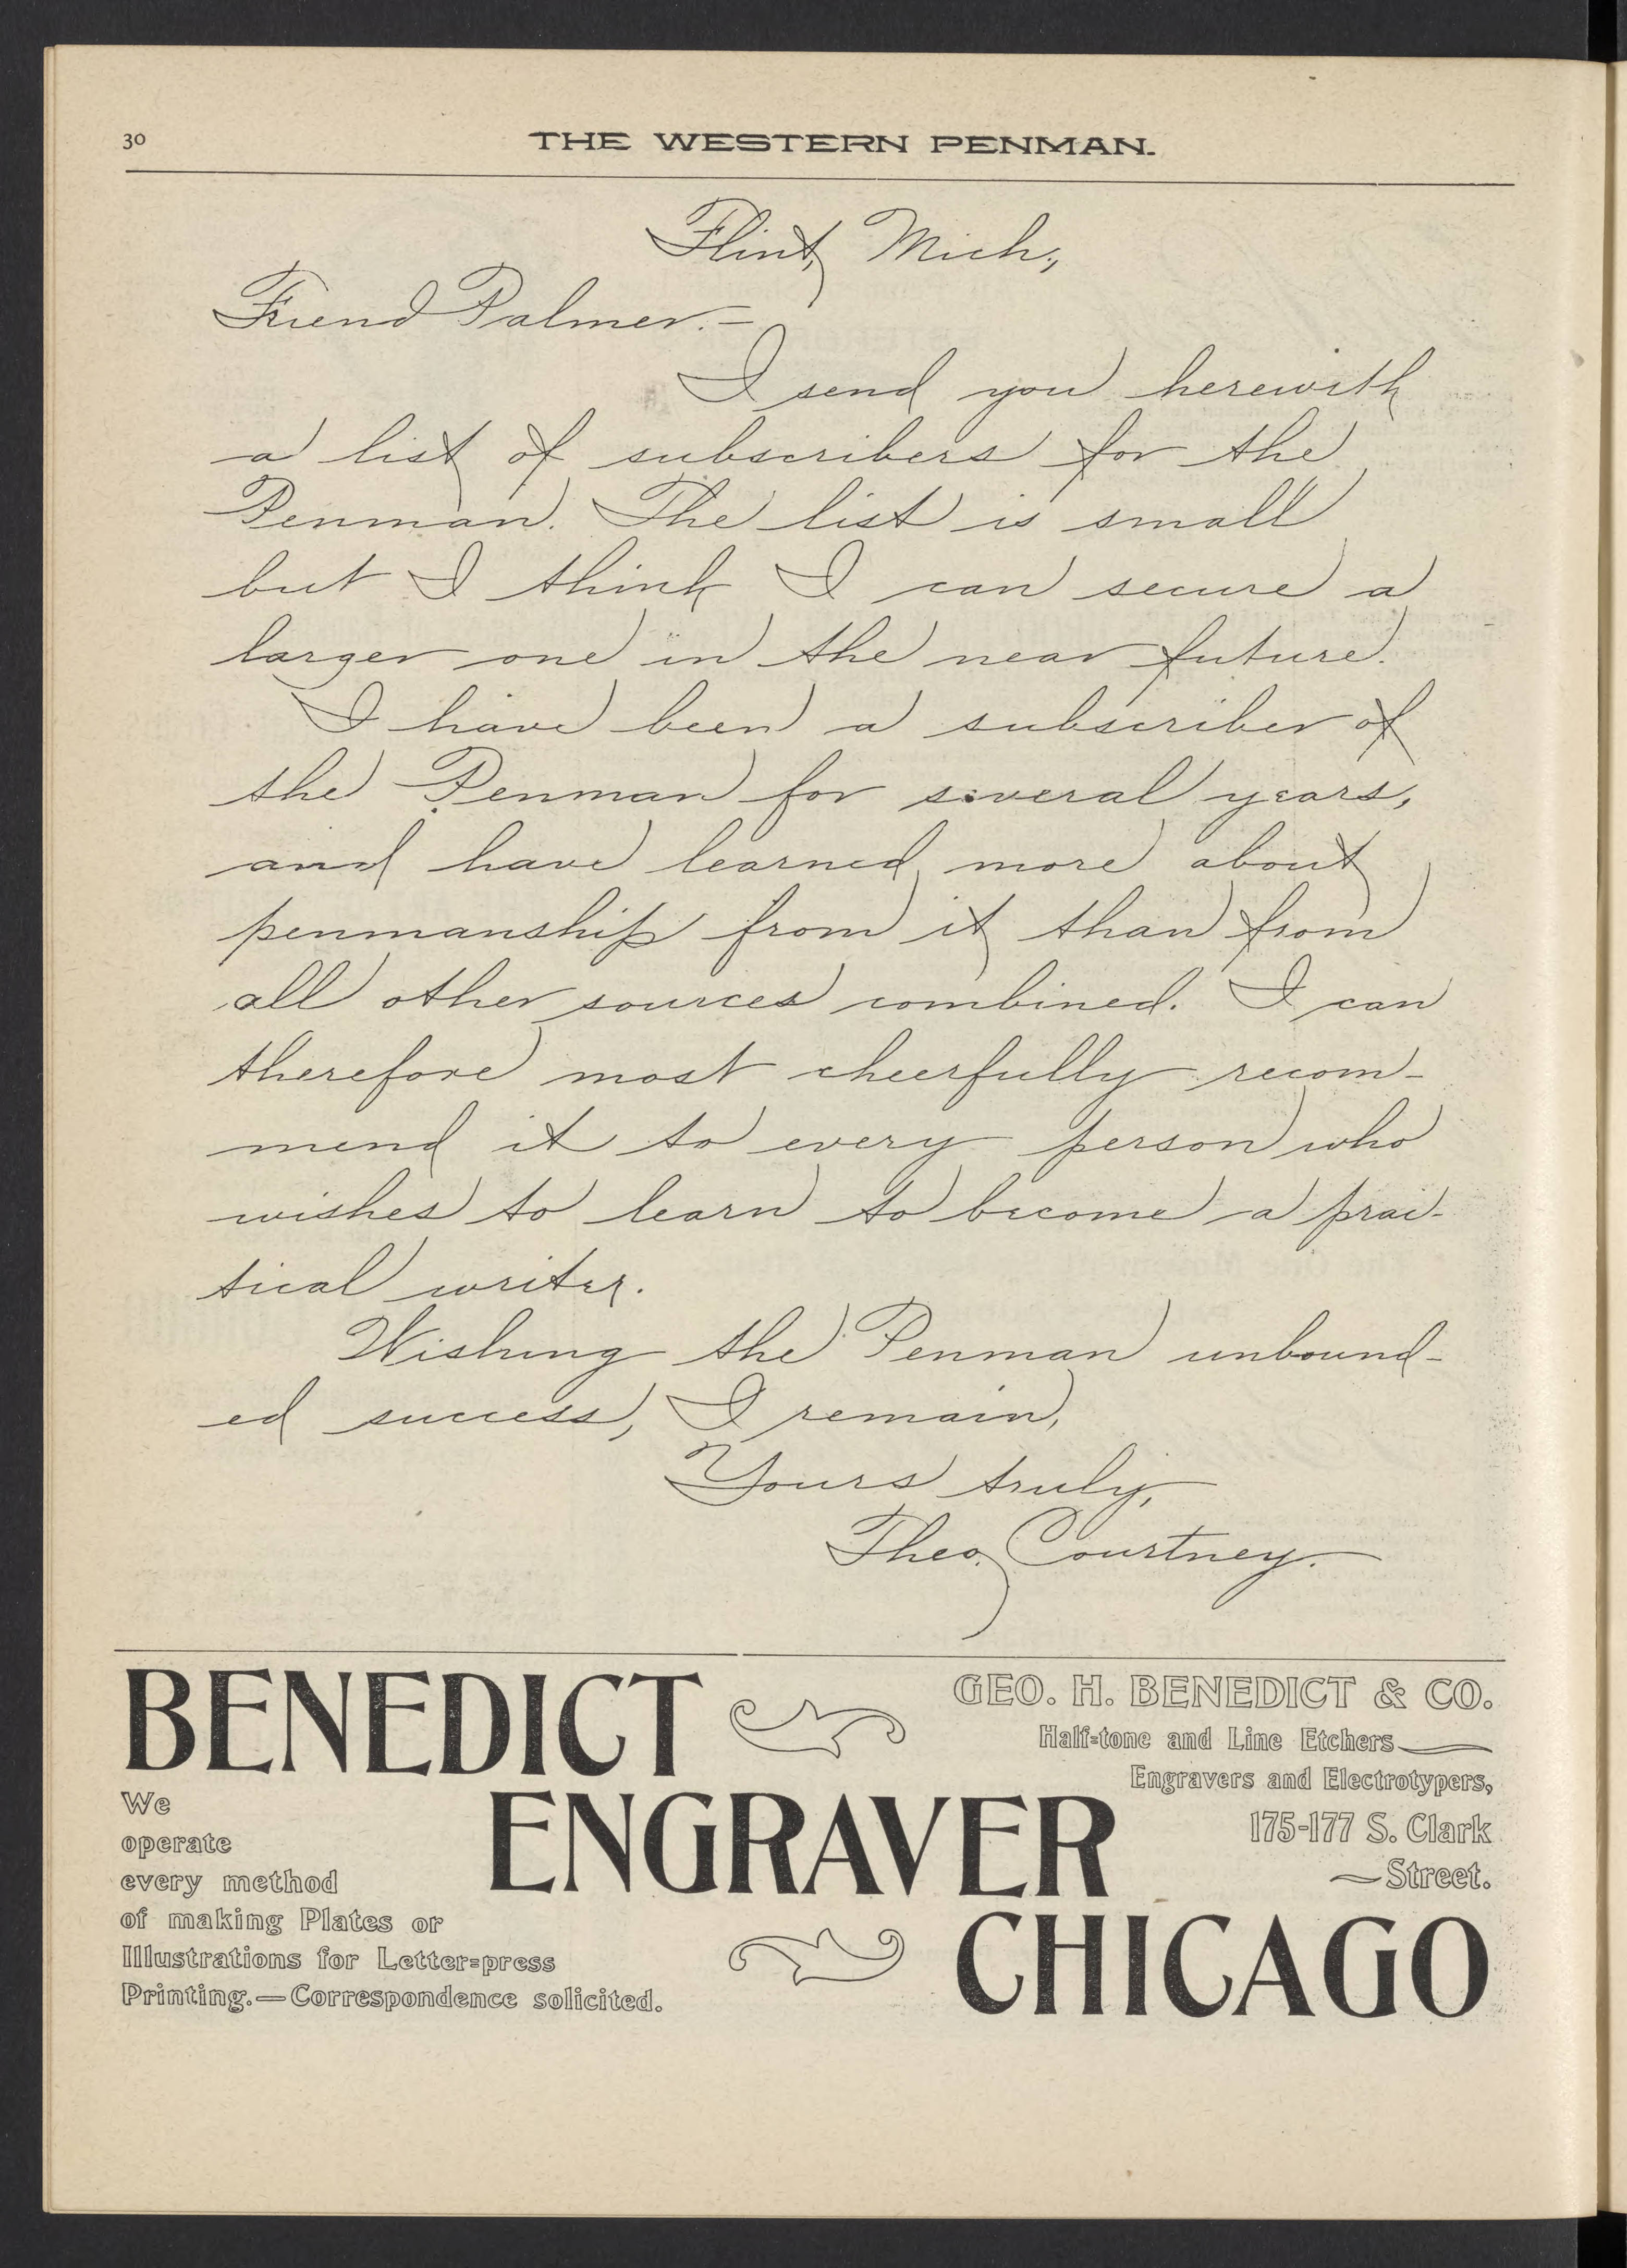 30
THE WESTERN PENMAN.
Flint, Mich.,
Friend Palmer:—
I send you herewith
a list of subscribers for the
Penman. The list is small
but I think I can secure a
larger one in the near future.
I have been a subscriber of
the Penman for several years,
and have learned more about
penmanship from it than from
all other sources combined. I can
therefore most cheerfully recom-
mend it to every person who
wishes to learn to become a prac-
tical writer.
Wishing the Penman unbound-
ed success, I remain,
Yours truly,
Theo. Courtney.
BENEDICT
GEO. H. BENEDICT & CO.
Half-tone and Line Etchers
Engravers and Electrotypers,
175-177 S. Clark
Street.
ENGRAVER
We
operate
every method
of making Plates or
Illustrations for Letter-press
Printing.—Correspondence solicited.
CHICAGO